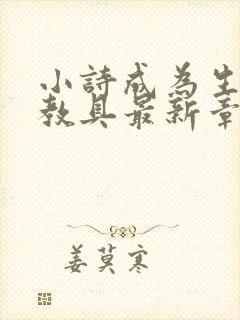 小詩成為生
教具最新章
姜莫寒